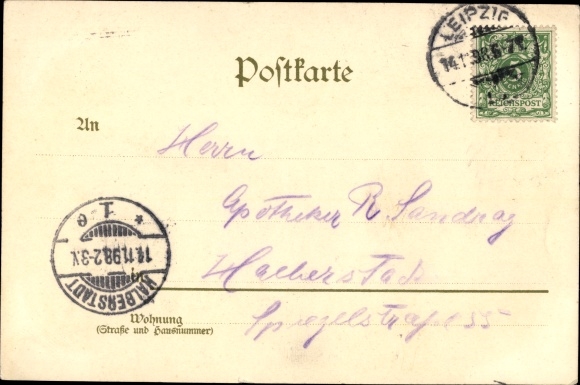 LEIPZIG
14.11.98.6-7V.
REICHSPOST
Postkarte
An
Herrn
Apotheker R Sandrag
Halberstadt
HALBERSTADT
14.11.98.2-3N.
1
e
Wohnung
(Straße und Hausnummer)
Spiegelstraße 55